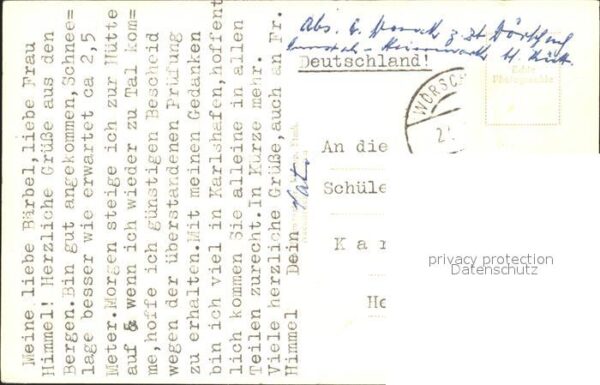 Meine liebe Bärbel, liebe Frau
Himmel! Herzliche Grüße aus den
Bergen.Bin gut angekommen,Schnee=
lage besser wie erwartet ca 2,5
Meter.Morgen steige ich zur Hütte
auf & wenn ich wieder zu Tal kom=
me,hoffe ich günstigen Bescheid
wegen der überstandenen Prüfung
zu erhalten.Mit meinen Gedanken
bin ich viel in Karlshafen,hoffent
lich kommen Sie alleine in allen
Teilen zurecht.In Kürze mehr.
Viele herzliche Grüße,auch an Fr.
Himmel Dein
Abs.
Deutschland!
Echte
Photographie
WÖRSC
An die
Schüle
Kar
Ho
privacy protection
Datenschutz